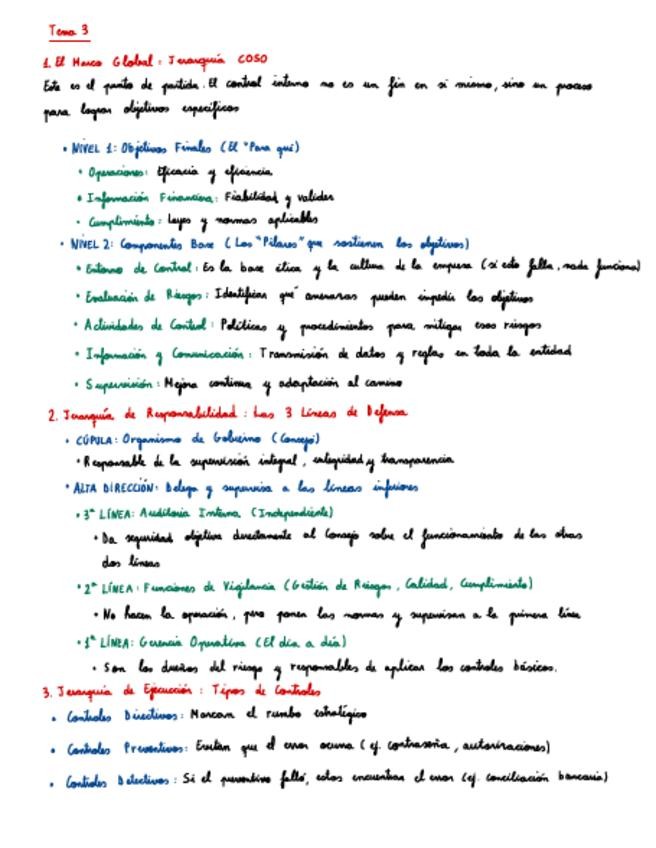 Tema 3
1. El Marco Global: Jerarquía COSO
Este es el punto de partida. El control interno no es un fin en sí mismo, sino un proceso
para lograr objetivos específicos
• NIVEL 1: Objetivos Finales (El "Para qué)
• Operaciones: Eficacia y eficiencia
• Información Financiera: Fiabilidad y validez
• Cumplimiento: Leyes y normas aplicables
• NIVEL 2: Componentes Base (Los "Pilares" que sostienen los objetivos)
• Entorno de Control: Es la base ética y la cultura de la empresa (si esto falla, nada funciona)
• Evaluación de Riesgos: Identifican qué amenazas pueden impedir los objetivos
• Actividades de Control: Políticas y procedimientos para mitigar esos riesgos
• Información y Comunicación: Transmisión de datos y reglas en toda la entidad
• Supervisión: Mejora continua y adaptación al camino
2. Jerarquía de Responsabilidad: Las 3 Líneas de Defensa
• CÚPULA: Organismo de Gobierno (Consejo)
• Responsable de la supervisión integral, integridad y transparencia
• ALTA DIRECCIÓN: Delega y supervisa a las líneas inferiores
• 3ª LÍNEA: Auditoría Interna (Independiente)
• Da seguridad objetiva directamente al Consejo sobre el funcionamiento de las otras
dos líneas
• 2ª LÍNEA: Funciones de Vigilancia (Gestión de Riesgos, Calidad, Cumplimiento)
• No hacen la operación, pero ponen las normas y supervisan a la primera línea
• 1ª LÍNEA: Gerencia Operativa (El día a día)
• Son los dueños del riesgo y responsables de aplicar los controles básicos.
3. Jerarquía de Ejecución: Tipos de Controles
• Controles Directivos: Marcan el rumbo estratégico
• Controles Preventivos: Evitan que el error ocurra (ej. contraseña, autorizaciones)
• Controles Detectivos: Si el preventivo falló, estos encuentran el error (ej. conciliación bancaria)